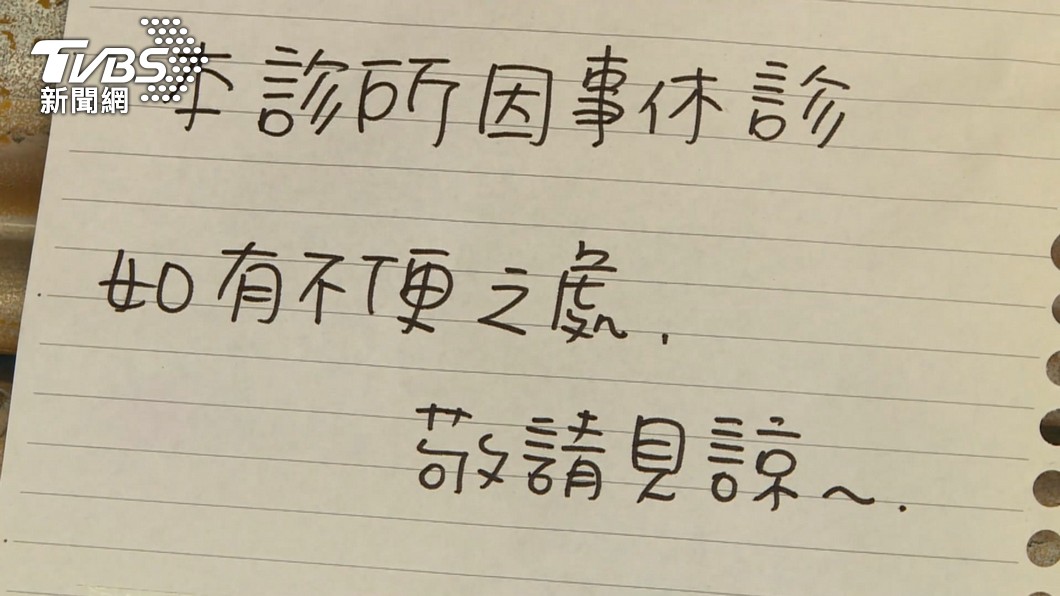 TVBS
新聞網
本診所因事休診
如有不便之處.
敬請見諒~.